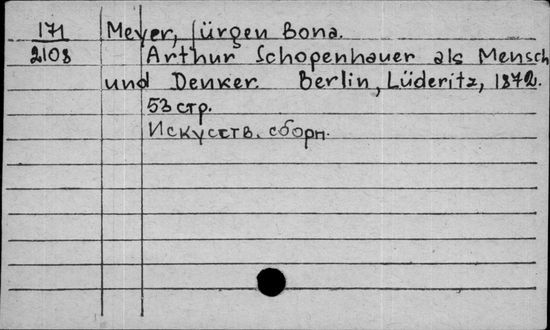 171 Meyer, Jürgen Bona.
2108 Arthur Schopenhauer als Mensch
und Denker. Berlin, Lüderitz, 1872.
53 стр.
Искусств. сборн.